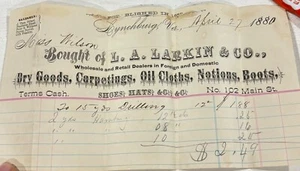 BLISHED IN
Lynchburg, Va. April 27 1880
Wilson
Bought of L. A. LARKIN & CO.,
Wholesale and Retail Dealers in Foreign and Domestic
Dry Goods, Carpetings, Oil Cloths, Notions, Boots,
Terms Cash. SHOES, HATS, &C., &C. No. 102 Main St.
To 15 yds Drilling 12 $1.88
2 yds 12 25
" " 08 16
" 10 20
$2.49